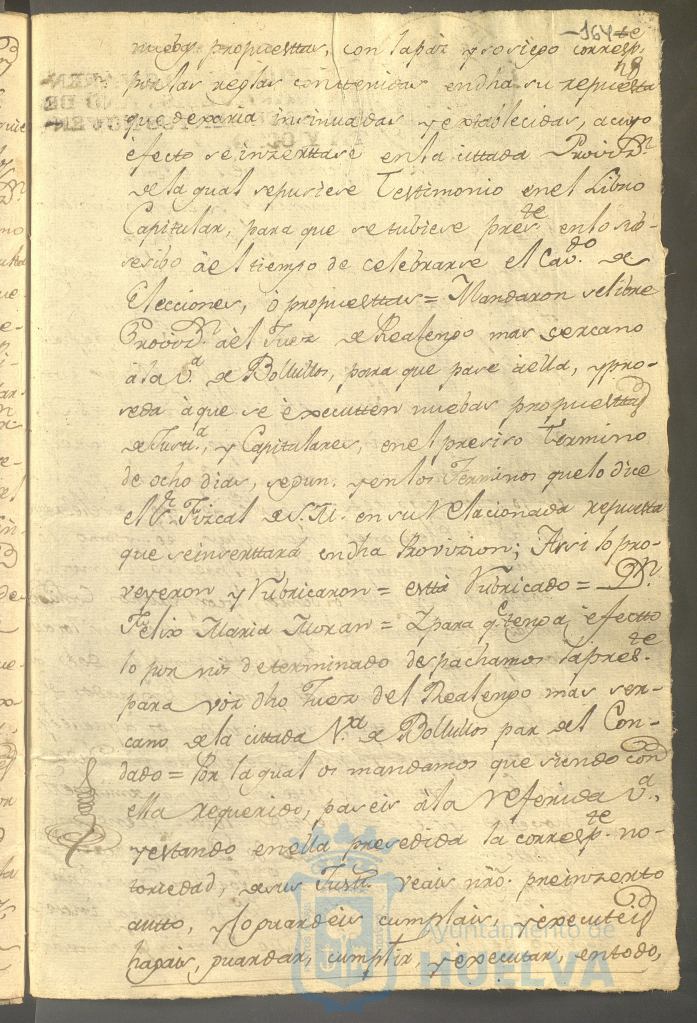 -164-
nuebas propuesttas, con la paz y sosiego corresp.te
por las reglas conttenidas en dha su repuesta
que dexaria insinuadas y establecidas, a cuyo
efecto se insertase en la cittada Provis.n
de la qual se pusiese Testimonio en el Libro
Capitular, para que se tubiese pres.te en lo sub-
sesibo àel tiempo de celebrarse el Cav.do de
Elecciones, ò propuesttas = Mandaron se libre
Provis.n àel Juez de Realengo mas sercano
à la V.a de Bollullos, para que pase àella, y pro-
seda à que se èxecutten nuebas propuesttas
de Justi.a, y Capitulares, en el presiso Termino
de ocho dias, segun, y en los Terminos que lo dice
el S.r Fiscal de S.M. en su Relacionada repuesta
que se inserttará en dha Provizion; Assi lo pro-
veyeron y Rubricaron = està Rubricado = D.n
Felix Maria Moran = Y para q.e tenga efectto
lo por nós determinado despachamos la pres.te
para vos dho Juez del Realengo mas ser-
cano de la cittada V.a de Bollullos par del Con-
dado = Por la qual os mandamos que siendo con
ella requerido, paseis à la Referida V.a,
y estando en ella presedida la corresp.te no-
toriedad, de sus Justi.s veais nro. preinserto
autto, y lo guardeis cumplais, y executeis
hagais, guardar, cumplir, y executar, en todo,
Ayuntamiento de
HUELVA